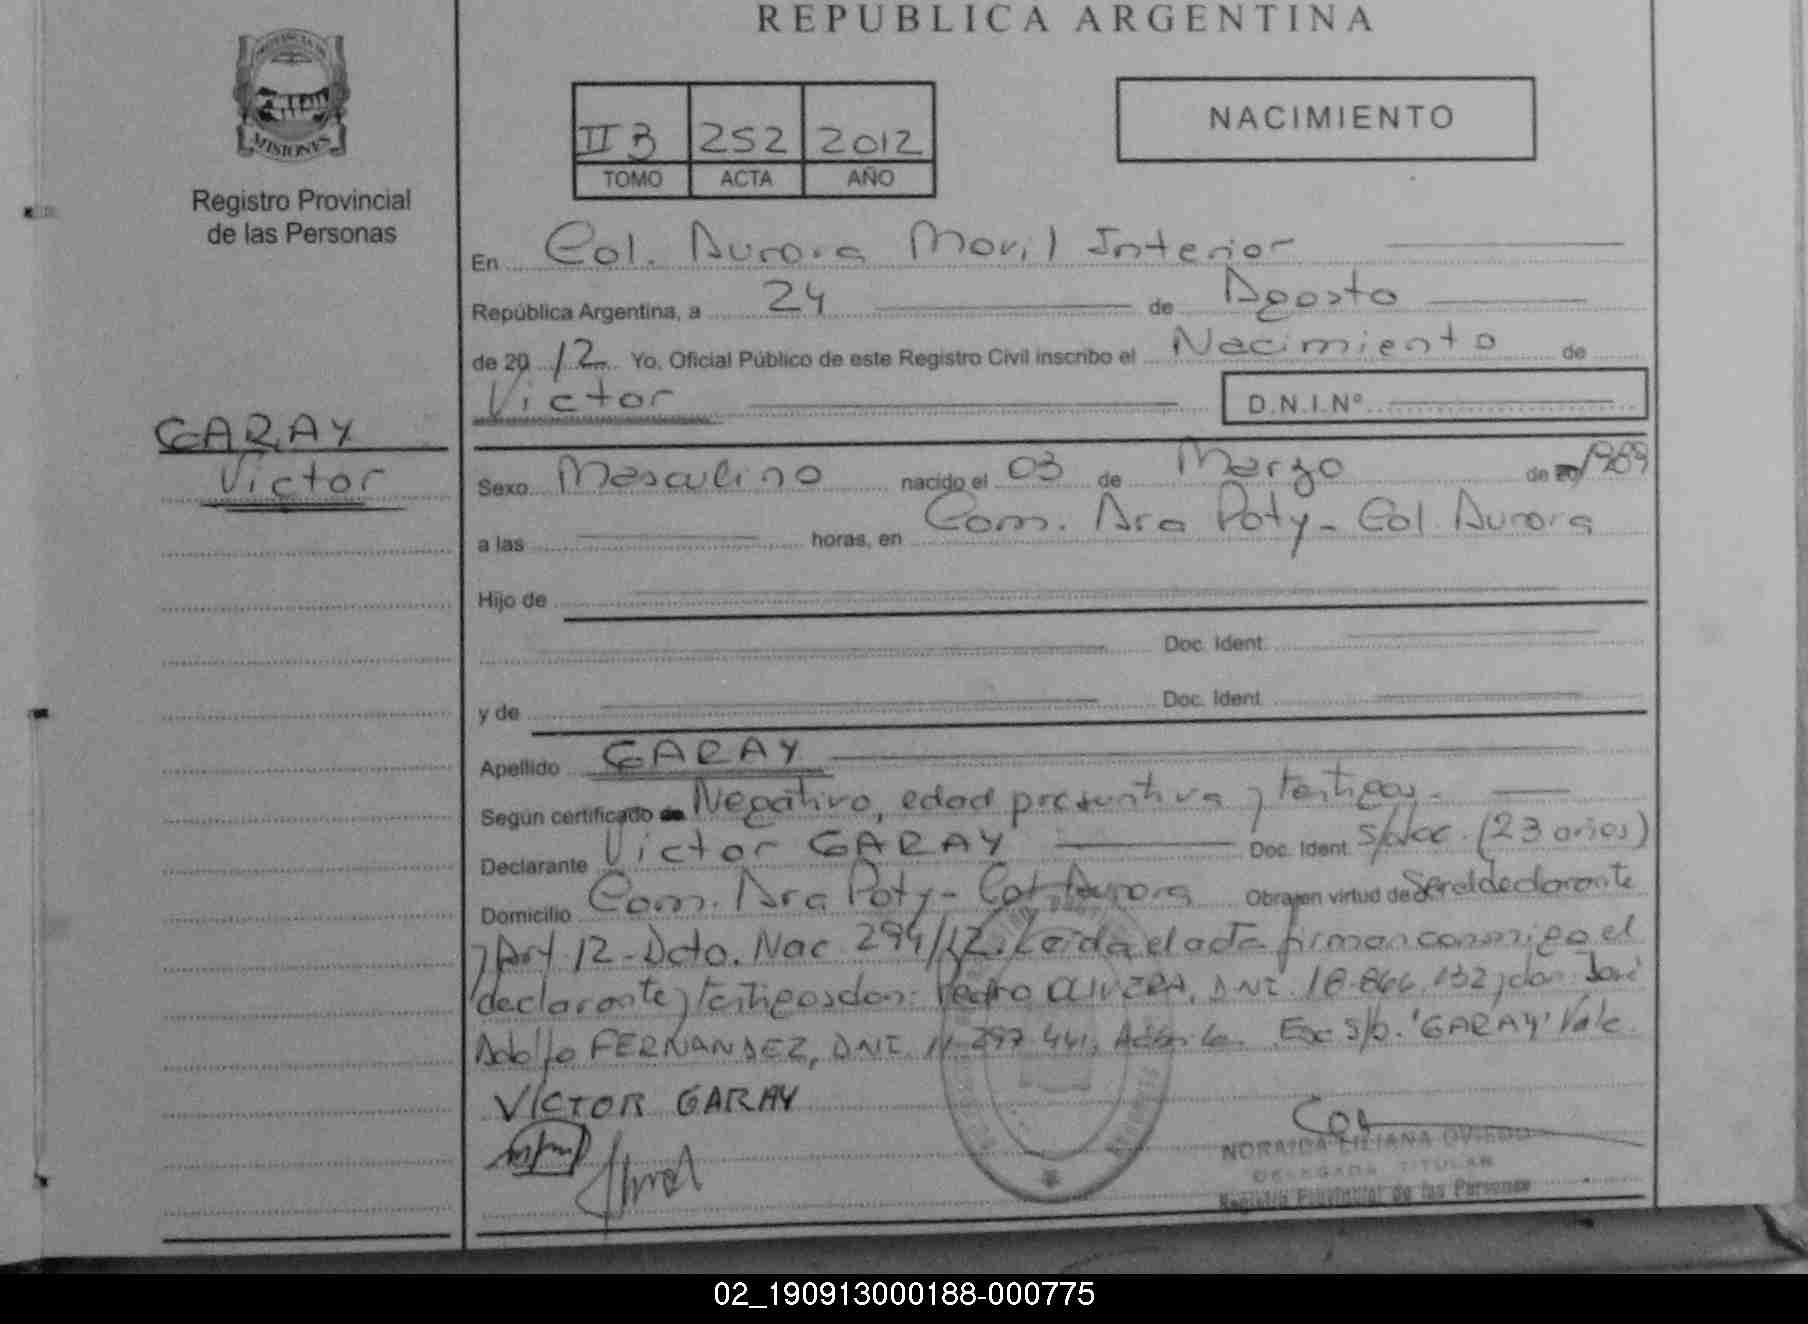 REPUBLICA ARGENTINA
PROVINCIA DE
MISIONES
Registro Provincial
de las Personas
II B 252 2012
TOMO ACTA AÑO
NACIMIENTO
En Col. Aurora Movil Interior
República Argentina, a 24 de Agosto
de 2012 Yo, Oficial Público de este Registro Civil inscribo el Nacimiento de
Victor D.N.I.Nº
GARAY
Victor
Sexo Masculino nacido el 03 de Marzo de 1989
a las horas, en Com. Ara Poty - Col. Aurora
Hijo de
Doc. Ident.
y de Doc. Ident.
Apellido GARAY
Según certificado de Negativo, edad presuntiva y testigos.
Declarante Victor GARAY Doc. Ident. s/doc. (23 años)
Domicilio Com. Ara Poty - Col. Aurora Obra en virtud de ser el declarante
y Art. 12 - Dcto. Nac. 294/12. Leída el acta firman conmigo el
declarante y testigos don: Pedro OLIVERA, DNI. 18.866.132 y don José
Adolfo FERNANDEZ, DNI. 11.297.441, Esc s/b. "GARAY" Vale.
VICTOR GARAY
NORAIDA LILIANA OVIEDO
DELEGADA TITULAR
Registro Provincial de las Personas
02_190913000188-000775